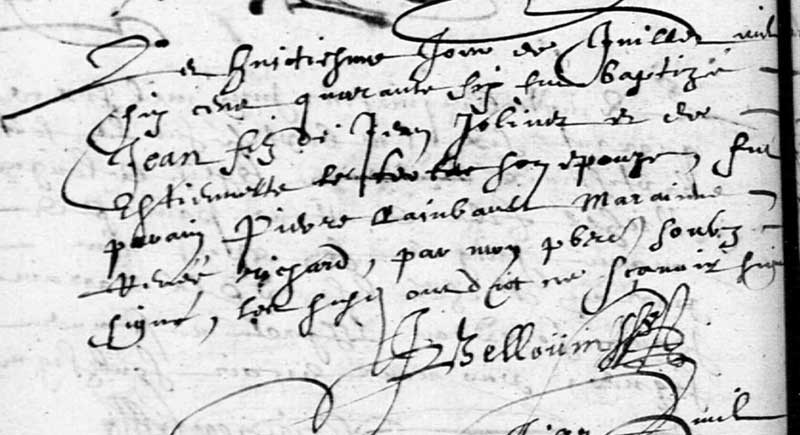 Le huictiesme Jour de Juillet mil
six cens quarante six fut baptizé
Jean filz de Jean Jolinet et de
Estiennette son epouze, fut
parain Pierre Raimbault Maraine
Renée Richard, par moy pbre soubz
signé, les susd ont dict ne sçavoir sign
Bellouin
mil